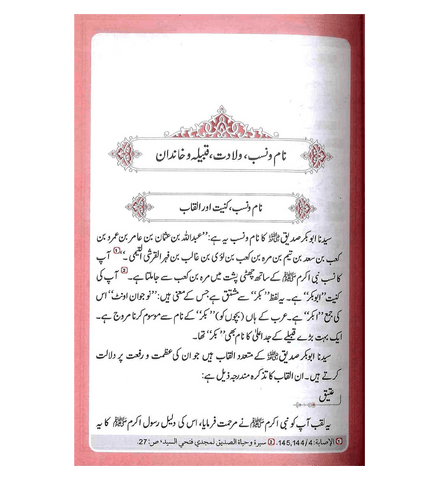 نام ونسب، ولادت، قبیلہ و خاندان
نام ونسب، کنیت اور القاب
سیدنا ابوبکر صدیق رضی اللہ عنہ کا نام ونسب یہ ہے: ”عبداللہ بن عثمان بن عامر بن عمرو بن
کعب بن سعد بن تیم بن مرہ بن کعب بن لؤی بن غالب بن فہر القرشی التیمی۔“ ① آپ
کا نسب نبی اکرم ﷺ کے ساتھ چھٹی پشت میں مرہ بن کعب سے جا ملتا ہے۔ ② آپ کی
کنیت ”ابوبکر“ ہے۔ یہ لفظ ”بکر“ سے مشتق ہے جس کے معنی ہیں: ”نوجوان اونٹ“ اس
کی جمع ”ابکر“ ہے۔ عرب کے ہاں (بچوں کو) ”بکر“ کے نام سے موسوم کرنا مروج ہے۔
ایک بہت بڑے قبیلے کے جد اعلیٰ کا نام بھی ”بکر“ تھا۔
سیدنا ابوبکر صدیق رضی اللہ عنہ کے متعدد القاب ہیں جو ان کی عظمت و رفعت پر دلالت
کرتے ہیں۔ ان القاب کا تذکرہ مندرجہ ذیل ہے:
عتیق
یہ لقب آپ کو نبی اکرم ﷺ نے مرحمت فرمایا، اس کی دلیل رسول اکرم ﷺ کا یہ
① الإصابة: 4/145,144. ② سيرة وحياة الصديق لمجدي فتحي السيد، ص: 27.